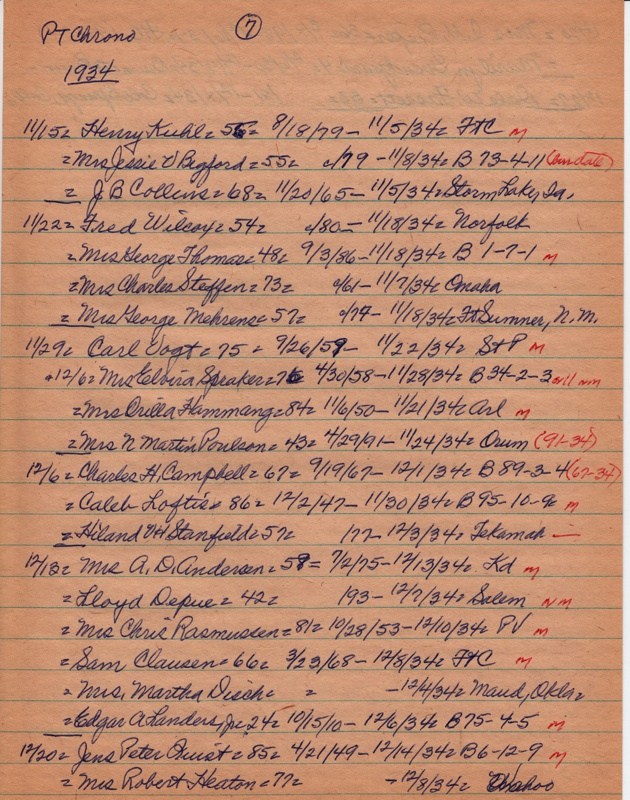 PT Chrono 7
1934
11/15 = Henry Kuhl = 56 = 8/18/79 - 11/5/34 = FtC m
= Mrs Jessie V Bigford = 55 = c/79 - 11/8/34 = B 73-4-11
= J B Collins = 68 = 11/20/65 - 11/5/34 = Storm Lake, Ia.
11/22 = Fred Wilcox = 54 = c/80 - 11/18/34 = Norfolk
= Mrs George Thomas = 48 = 9/3/86 - 11/18/34 = B 1-7-1 m
= Mrs Charles Steffen = 73 = c/61 - 11/7/34 = Omaha
= Mrs George Mehrens = 57 = c/77 - 11/18/34 = Ft Sumner, N.M.
11/29 = Carl Vogt = 75 = 9/26/59 - 11/22/34 = St P m
12/6 = Mrs Elvira Speaker = 76 = 4/30/58 - 11/28/34 = B 34-2-3
= Mrs Orilla Hammang = 84 = 11/6/50 - 11/21/34 = Arl m
= Mrs N Martin Poulson = 43 = 4/29/91 - 11/24/34 = Orum (91-34)
12/6 = Charles H. Campbell = 67 = 9/19/67 - 12/1/34 = B 89-3-4 (67-34)
= Caleb Loftis = 86 = 12/2/47 - 11/30/34 = B 95-10-9 = m
= Hiland Stanfield = 57 = 177 - 12/3/34 = Tekamah -
12/13 = Mrs A. D. Andersen = 59 = 7/2/75 - 12/13/34 = Kd m
= Lloyd Depue = 42 = 193 - 12/7/34 = Salem nm
= Mrs Chris Rasmussen = 81 = 10/28/53 - 12/10/34 = PV m
= Sam Clausen = 66 = 3/23/68 - 12/8/34 = FtC m
= Mrs. Martha Disch = = - 12/4/34 = Maud, Okla =
= Edgar A Landers, Jr = 24 = 10/15/10 - 12/6/34 = B 75-4-5 m
12/20 = Jens Peter Quist = 85 = 4/21/49 - 12/14/34 = B 6-12-9 m
= Mrs Robert Heaton = 77 = - 12/8/34 =